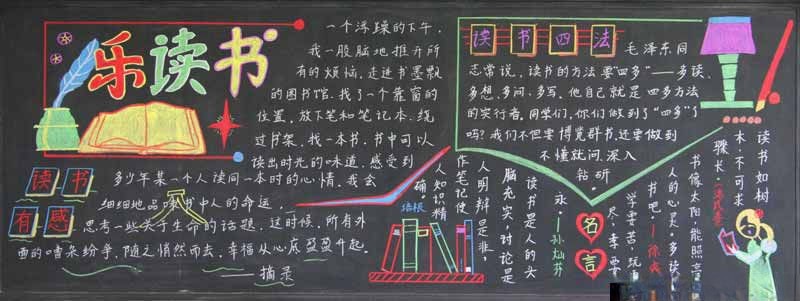 乐读书
一个浮躁的下午，
我一股脑地推开所
有的烦恼，走进书墨飘
的图书馆，找了一个靠窗的
位置，放下笔和笔记本，绕
过书架，找一本书，书中可以
读出时光的味道，感受到
读书
有感
多少年某一个人读同一本时的心情，我会
细细地品味书中人的命运，
思考一些关于生命的话题，这时候，所有外
面的嘈杂纷争，随之悄然而去，幸福从心底盈盈升起
——摘录
读书四法
毛泽东同
志常说，读书的方法要“四多”——多读、
多想、多问、多写，他自己就是四多方法
的实行者，同学们，你们做到了“四多”了
吗？我们不但要博览群书，还要做到
不懂就问，深入
钻研。
名言
读书如树
木，不可求
骤长。
书像太阳，能照亮
人的心灵，多读
书吧。
学要苦，玩
尽，孝要
读书是人的头
脑充实，讨论是
人明辩是非，
作笔记使
人知识精
确
永。——孙灿芬